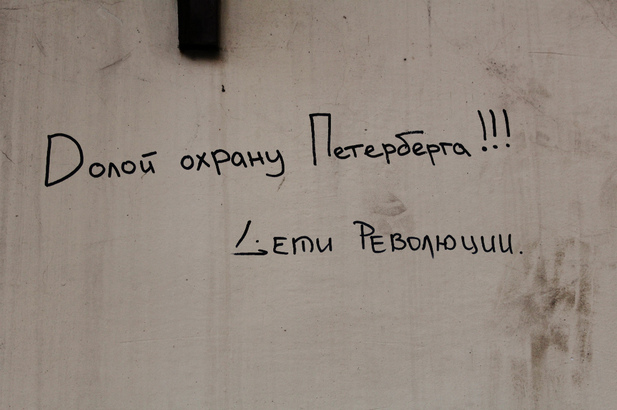 Долой охрану Петерберга!!!
Дети Революции.